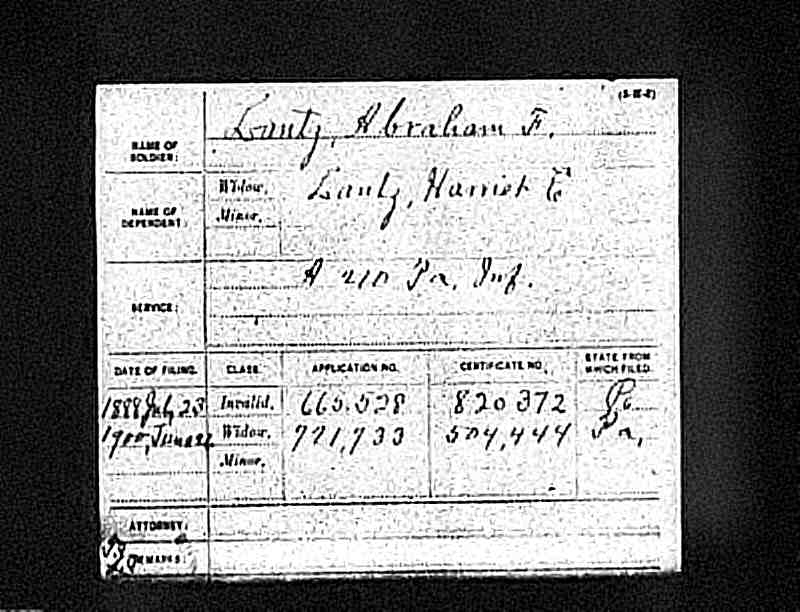 (3-lt-2)
Lantz, Abraham F.
NAME OF
SOLDIER:
Widow, Lantz, Harriet E
Minor,
NAME OF
DEPENDENT:
A 210 Pa. Inf.
SERVICE:
DATE OF FILING. CLASS. APPLICATION NO. CERTIFICATE NO. STATE FROM
WHICH FILED.
1888 July 23 Invalid, 665.528 820 372 Pa
1900, June Widow, 721,733 504,444 Pa,
Minor,
ATTORNEY:
REMARKS: